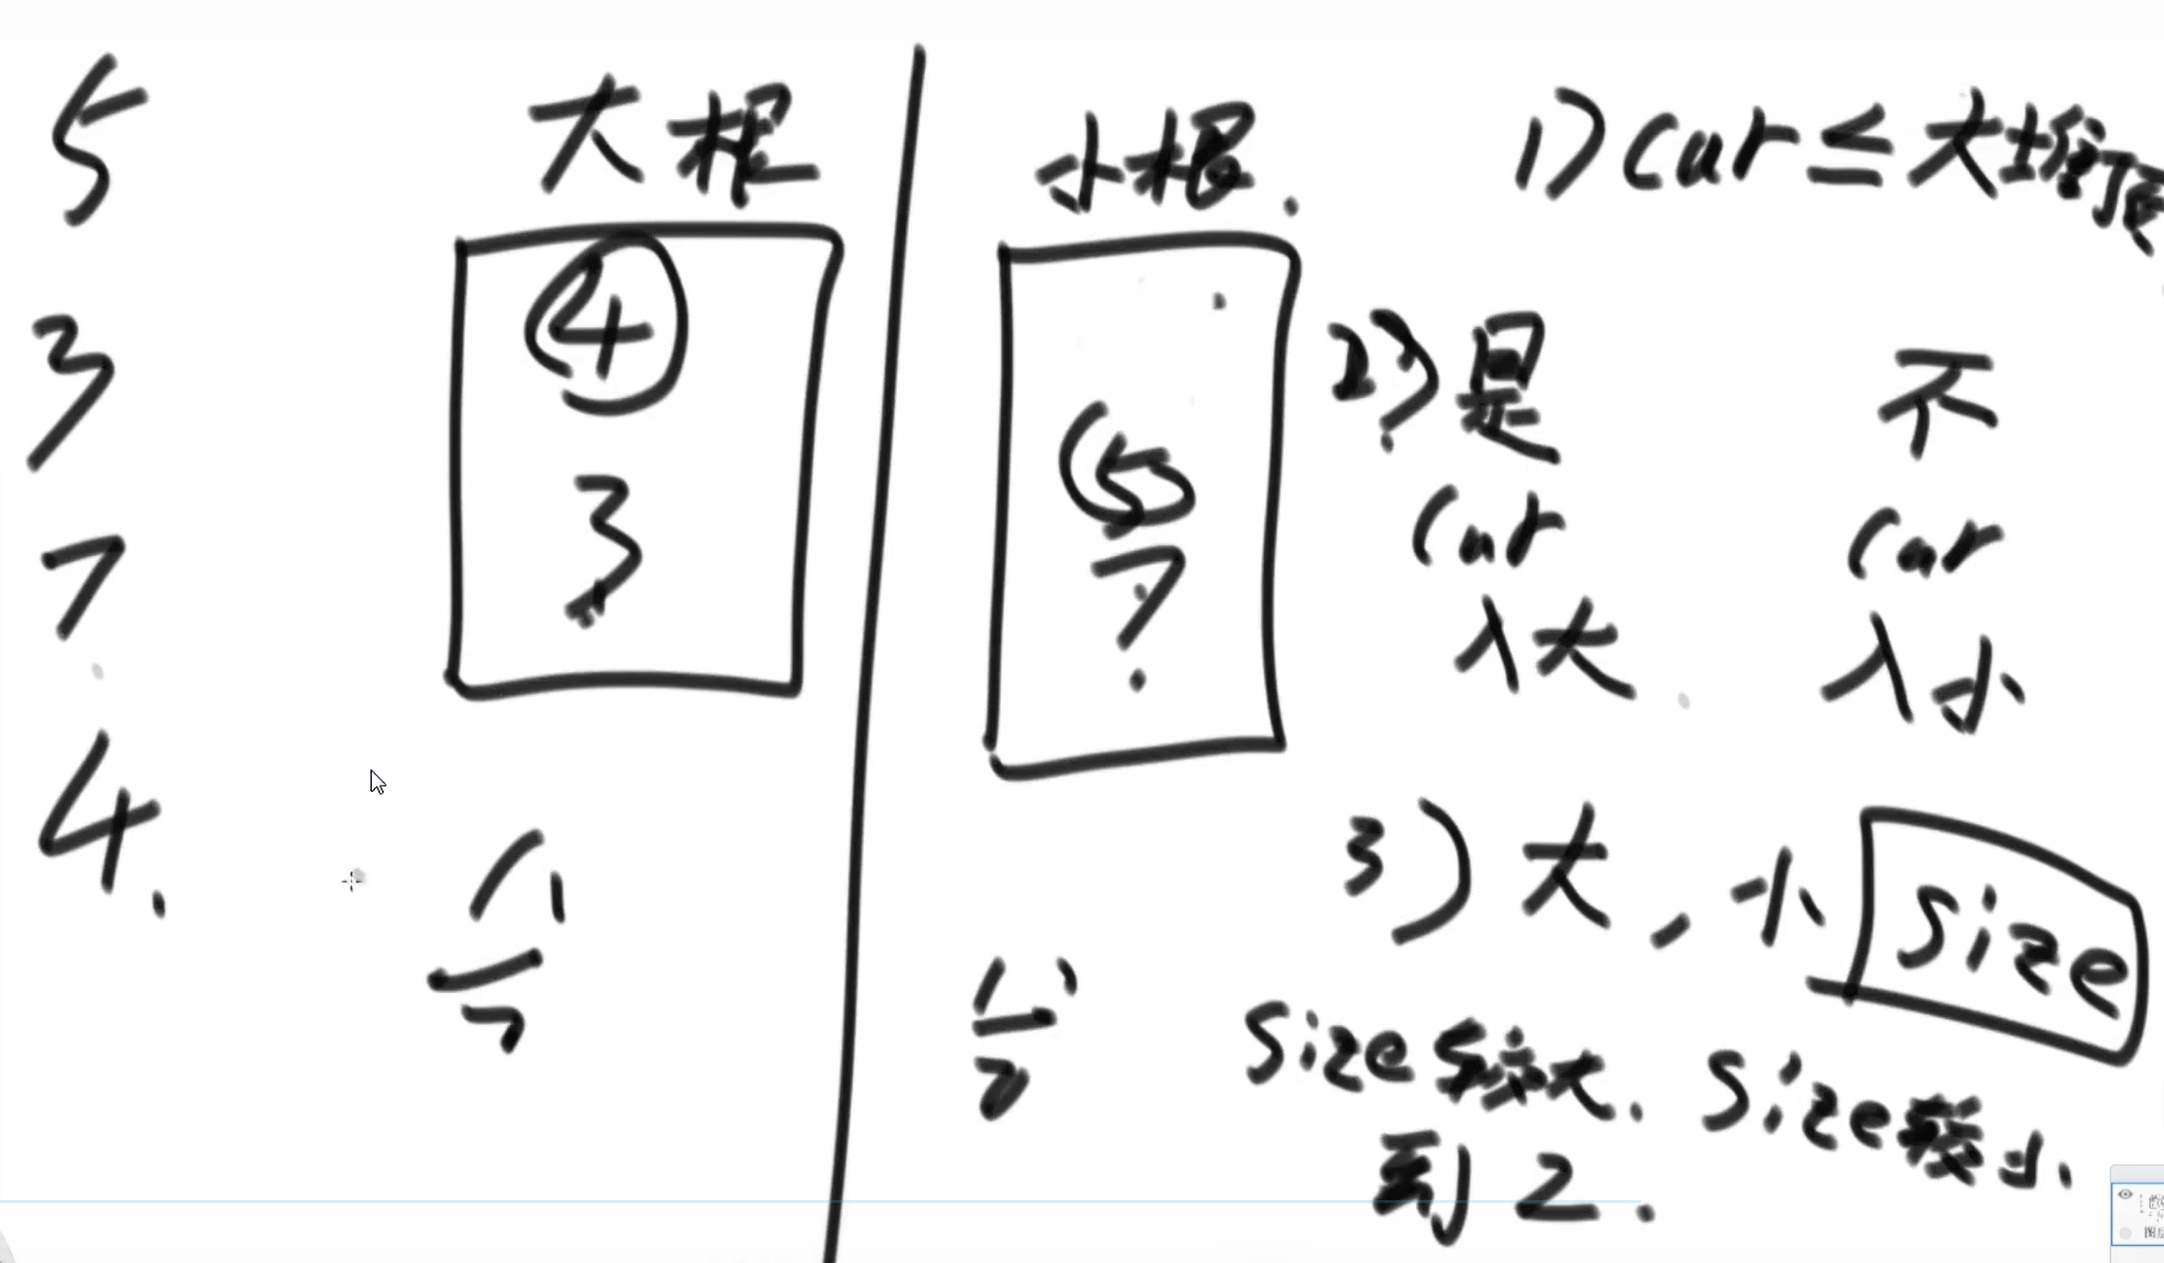 5
3
7
4.
大根
4
3
小根.
5
7
1) cur ≤ 大堆顶
2) 是 不
cur cur
入大 入小
3) 大, 小 size
size较大. size较小.
到2.